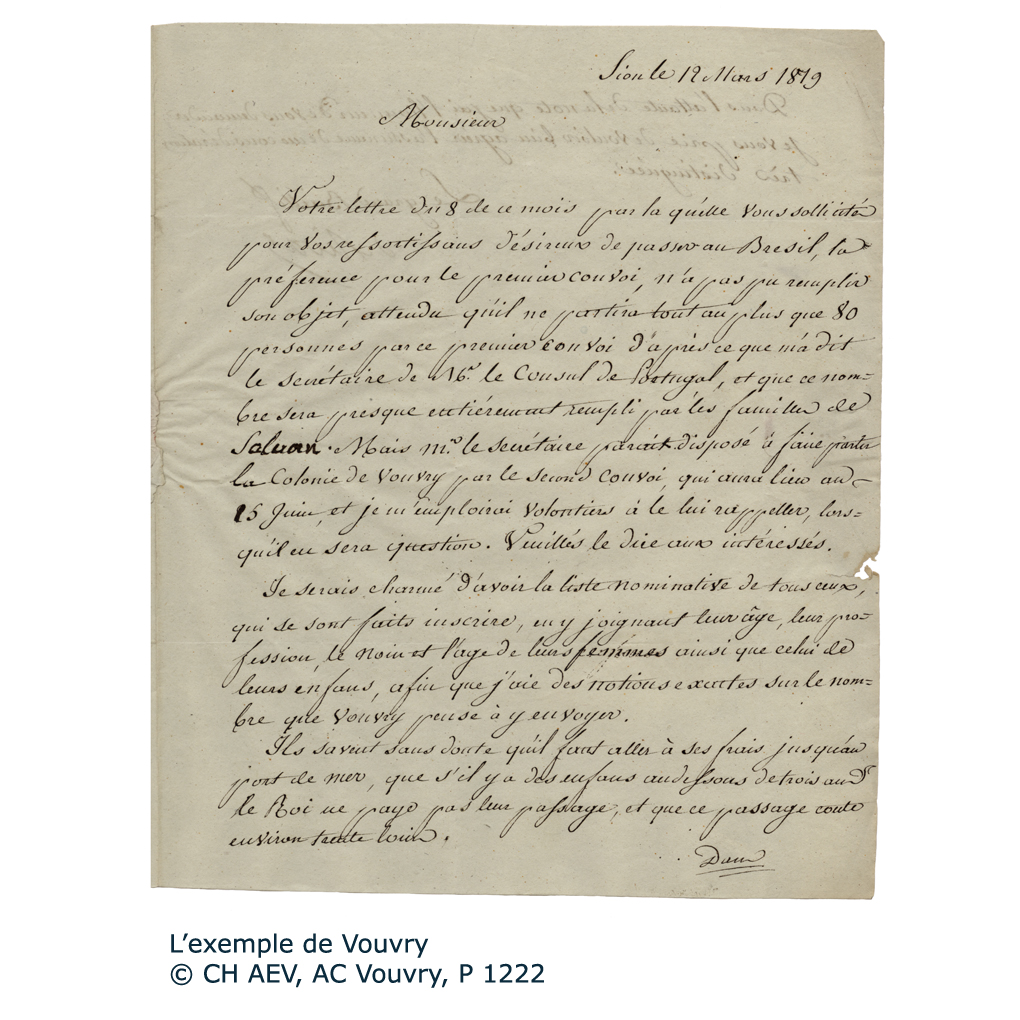 Sion le 12 Mars 1819
Monsieur
Votre lettre du 8 de ce mois par la quelle vous sollicités
pour vos ressortissans désireux de passer au Bresil, la
préference pour le premier convoi, n'a pas pu remplir
son objet, attendu qu'il ne partira tout au plus que 80
personnes par ce premier convoi d'après ce que m'a dit
le secrétaire de Mr. le Consul de Portugal, et que ce nom=
bre sera presque entiérement rempli par les familles de
Salvan. Mais Mr. le secrétaire parait disposé à faire partir
la Colonie de Vouvry par le second convoi, qui aura lieu au
15 Juin, et je m'emploirai volontiers à le lui rappeller, lors=
qu'il en sera question. Veuillés le dire aux intéressés.
Je serais charmé d'avoir la liste nominative de tous ceux,
qui se sont faits inscrire, en y joignant leur âge, leur pro=
fession, le nom et l'age de leurs femmes ainsi que celui de
leurs enfans, afin que j'aie des notions exactes sur le nom=
bre que Vouvry pense à y envoyer.
Ils savent sans doute qu'il faut aller à ses frais jusqu'au
port de mer, que s'il y a des enfans au dessous de trois ans
le Roi ne paye pas leur passage, et que ce passage coute
environ trente louis.
Dans
L'exemple de Vouvry
© CH AEV, AC Vouvry, P 1222